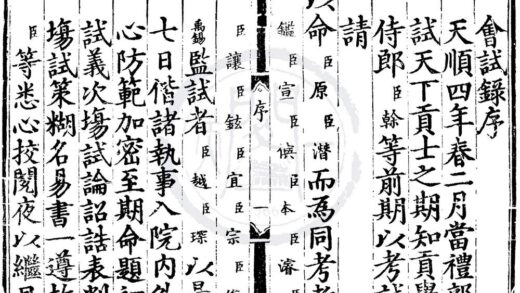 會試錄序
天順四年春二月當禮部
試天下貢士之期知貢舉
侍郎臣榦等前期以考試
請
以命臣原臣潛而爲同考
鑑臣宣臣傎臣本臣濬臣
序
一
臣讓臣鉉臣宜臣宗臣
禹錫監試者臣越臣琛以是
七日偕諸執事入院內外
心防範加密至期命題初
試義次塲試論詔誥表判
塲試策糊名易書一遵故
臣等悉心挍閱夜以繼